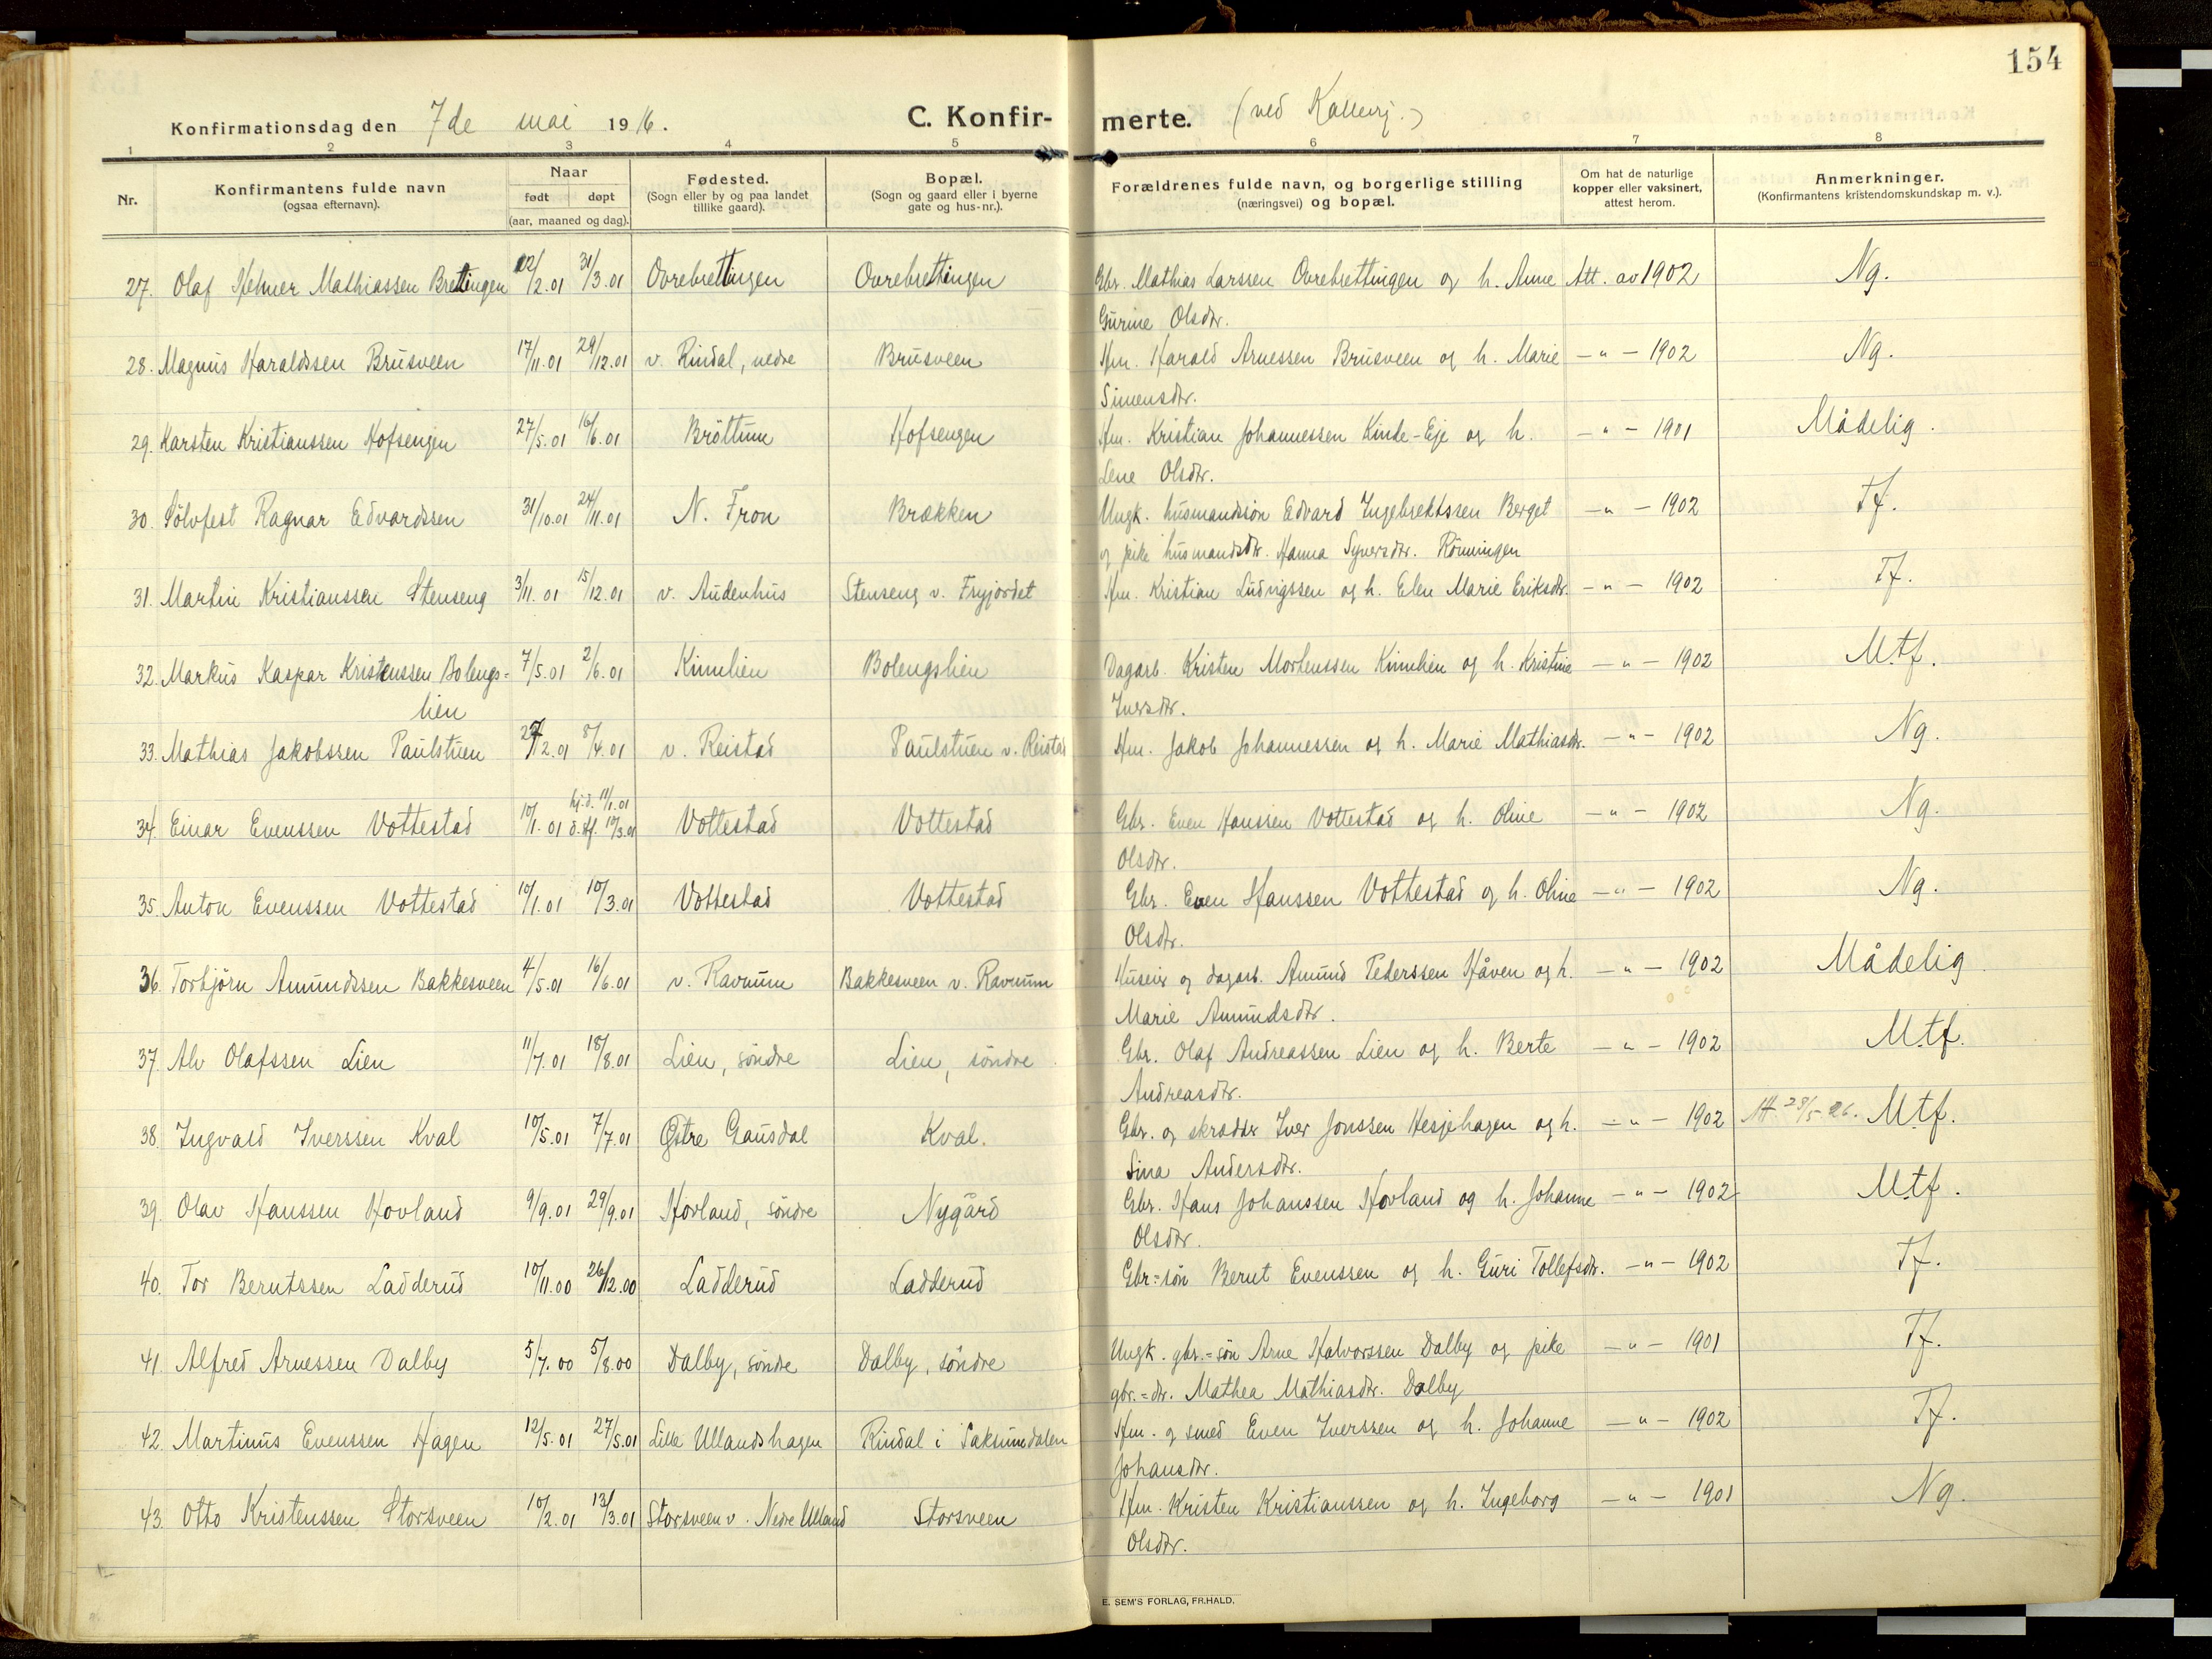 154
Konfirmationsdag den 7de mai 1916. C. Konfirmerte.
1 2 3 4 5 6 7 8
Nr. Konfirmantens fulde navn (ogsaa efternavn). Naar født døpt (aar, maaned og dag). Fødested. (Sogn eller by og paa landet tillike gaard). Bopæl. (Sogn og gaard eller i byerne gate og hus-nr.). Forældrenes fulde navn, og borgerlige stilling (næringsvei) og bopæl. Om hat de naturlige kopper eller vaksinert, attest herom. Anmerkninger. (Konfirmantens kristendomskundskap m. v.).
27. Olaf Helmer Mathiassen Brettingen 31/3.01 Övrebrettingen Övrebrettingen Gbr. Mathias Larssen Övrebrettingen og h. Anne Att. av 1902 Ng.
Gurine Olsdtr.
28. Magnus Haraldssen Brusveen 17/11.01 29/12.01 v. Rindal, nedre Brusveen Hm. Harald Arnessen Brusveen og h. Marie —"— 1902 Ng.
Simensdtr.
29. Karsten Kristianssen Hofsengen 27/5.01 16/6.01 Bröttum Hofsengen Hm. Kristian Johannessen Kinde-Eje og h. —"— 1901 Mådelig.
Lene Olsdtr.
30. Sölvfest Ragnar Edvardssen 31/10.01 24/11.01 N. Fron Brækken Ungk. husmandssön Edvard Ingebrektssen Berget —"— 1902 Tf.
og pike husmandsdtr. Hanna Syversdtr. Rönningen
31. Martin Kristianssen Stenseng 3/11.01 15/12.01 v. Audenhus Stenseng v. Fryjordet Hm. Kristian Ludvigssen og h. Elen Marie Eriksdtr. —"— 1902 Tf.
32. Markus Kaspar Kristenssen Bolengs= 7/5.01 2/6.01 Kimlien Bolengslien Dagarb. Kristen Mortenssen Kimlien og h. Kristine —"— 1902 Mtf.
lien Iversdtr.
33. Mathias Jakobssen Paulstuen 8/4.01 v. Reistad Paulstuen v. Reistad Hm. Jakob Johannessen og h. Marie Mathiasdtr. —"— 1902 Ng.
hj.d. 11/1.01
34. Einar Evenssen Vottestad 10/1.01 10/3.01 Vottestad Vottestad Gbr. Even Hanssen Vottestad og h. Oline —"— 1902 Ng.
Olsdtr.
35. Anton Evenssen Vottestad 10/1.01 10/3.01 Vottestad Vottestad Gbr. Even Hanssen Vottestad og h. Oline —"— 1902 Ng.
Olsdtr.
36. Torbjörn Amundssen Bakkesveen 4/5.01 16/6.01 v. Ravnum Bakkesveen v. Ravnum Huseier og dagarb. Amund Pederssen Håven og h. —"— 1902 Mådelig
Marie Amundsdtr.
37. Alv Olafssen Lien 11/7.01 18/8.01 Lien, söndre Lien, söndre Gbr. Olaf Andreassen Lien og h. Berte —"— 1902 Mtf.
Andreasdtr.
38. Ingvald Iverssen Kval 10/5.01 7/7.01 Østre Gausdal Kval. Gbr. og skrædder Iver Jonssen Hesjehagen og h. —"— 1902 Att. 28/5-26. Mtf.
Sina Andersdtr.
39. Olav Hanssen Hovland 9/9.01 29/9.01 Hovland, söndre Nygård Gbr. Hans Johanssen Hovland og h. Johanne —"— 1902 Mtf.
Olsdtr.
40. Tor Berntssen Ladderud 10/11.00 26/12.00 Ladderud Ladderud Gbr=sön Bernt Evenssen og h. Guri Tollefsdtr. —"— 1902 Tf.
41. Alfred Arnessen Dalby 5/7.00 5/8.00 Dalby, söndre Dalby, söndre Ungk. gbr.=sön Arne Halvorssen Dalby og pike —"— 1901 Tf.
gbr.=dtr. Mathea Mathiasdtr. Dalby
42. Martinus Evenssen Hagen 12/5.01 27/5.01 Lille Ullandshagen Rindal i Saksumdalen Hm. og smed Even Iverssen og h. Johanne —"— 1902 Tf.
Johansdtr.
43. Otto Kristenssen Storsveen 10/2.01 13/3.01 Storsveen v. Nedre Ulland Storsveen Hm. Kristen Kristianssen og h. Ingeborg —"— 1901 Ng.
Olsdtr.
E. SEM'S FORLAG, FR.HALD.